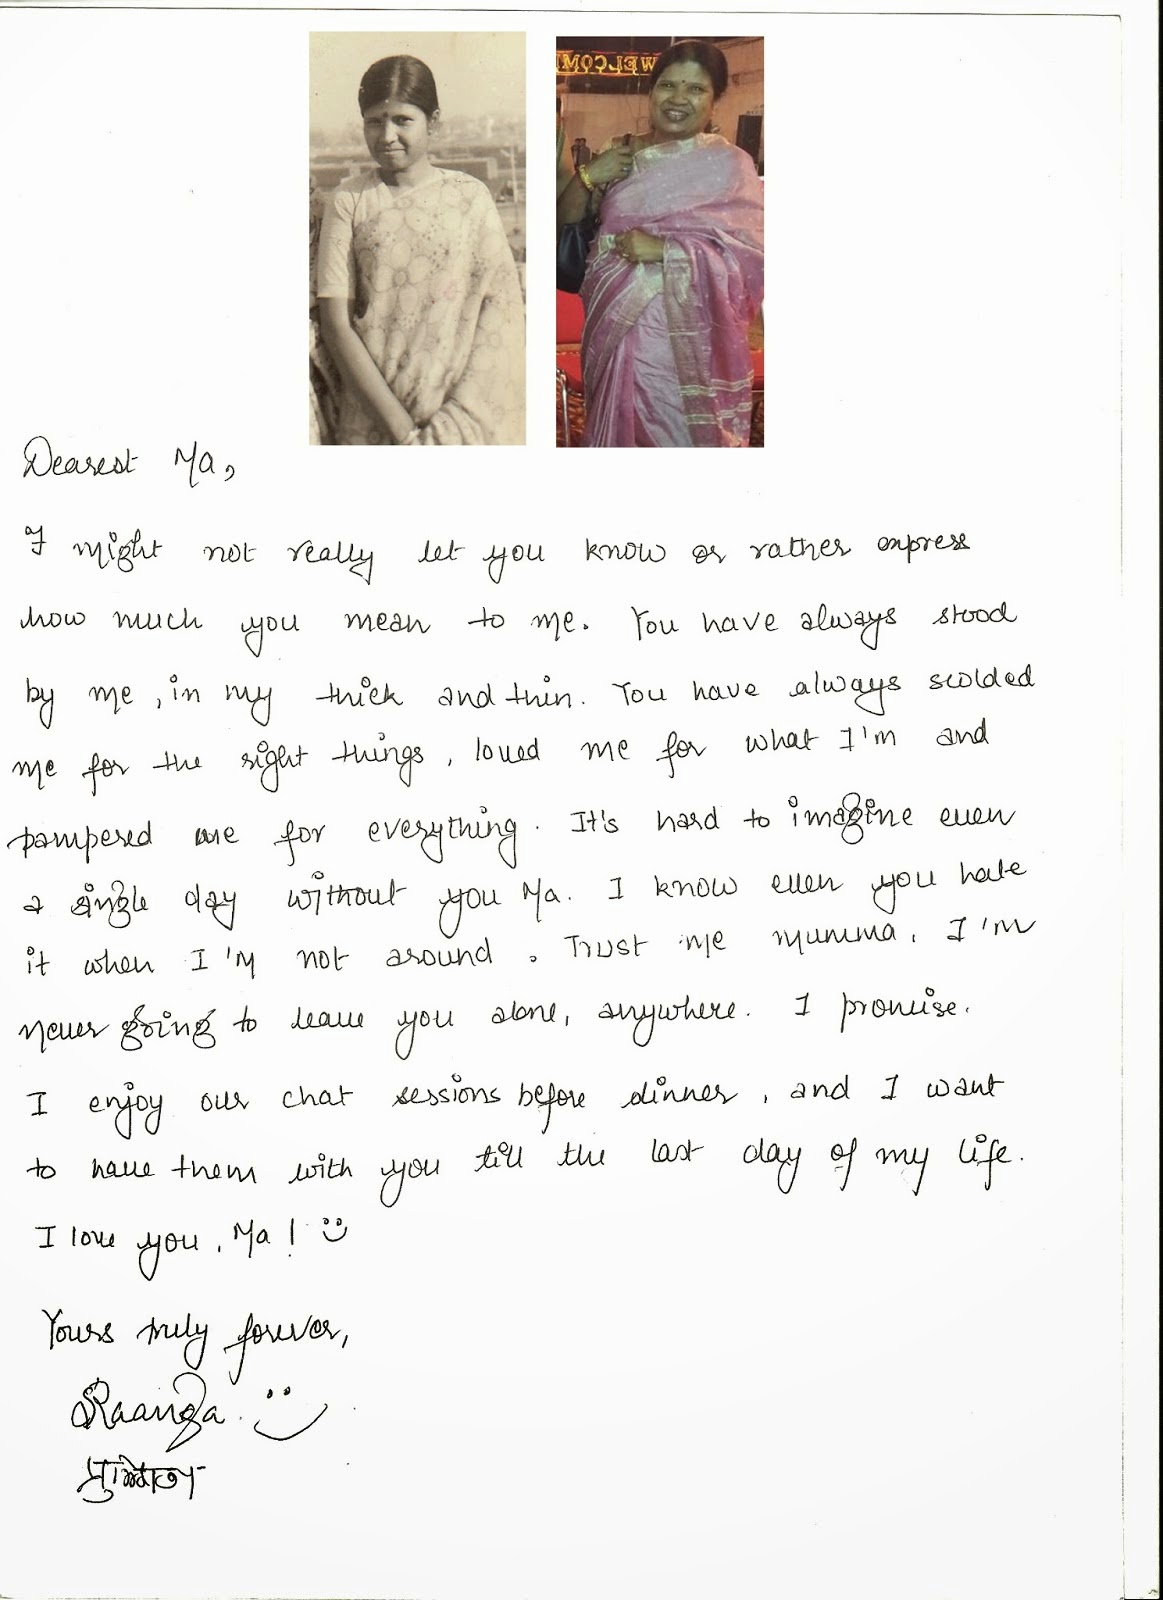 WELCOME
Dearest Ma,
I might not really let you know or rather express
how much you mean to me. You have always stood
by me, in my thick and thin. You have always scolded
me for the right things, loved me for what I'm and
pampered me for everything. It's hard to imagine even
a single day without you Ma. I know even you hate
it when I'm not around. Trust me mumma, I'm
never going to leave you alone, anywhere. I promise.
I enjoy our chat sessions before dinner, and I want
to have them with you till the last day of my life.
I love you, Ma! :)
Yours truly forever,
Raanga :)